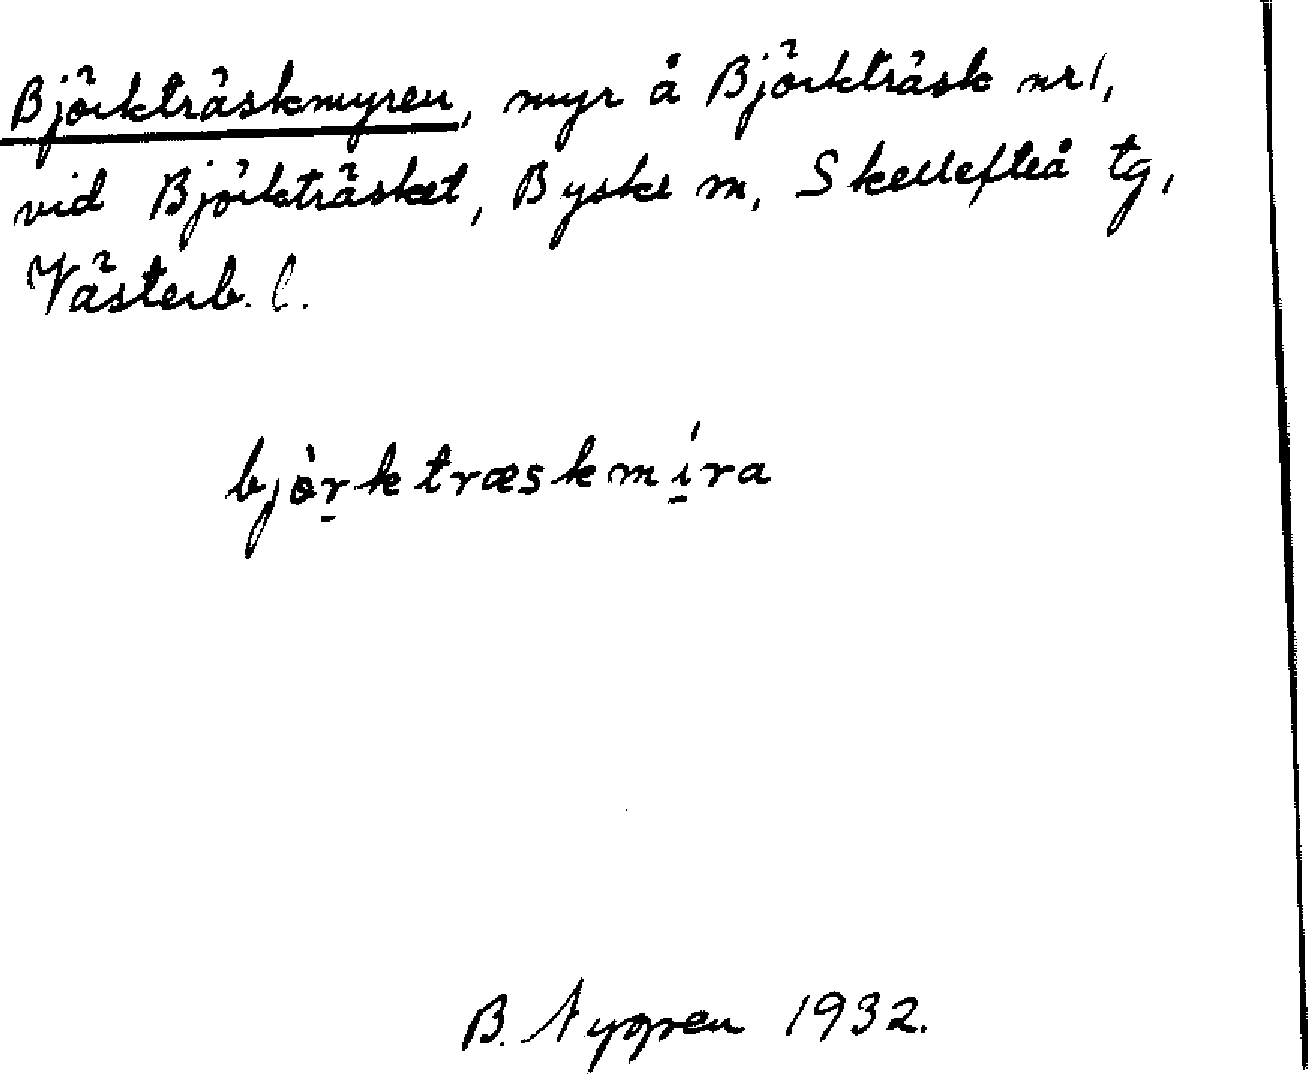 Björkträskmyren, myr å Björkträsk nr 1,
vid Björkträsket, Byske sn, Skellefteå tg,
Västerb. l.
bjòr̠ktræskmí̠ra
B. Nygren 1932.